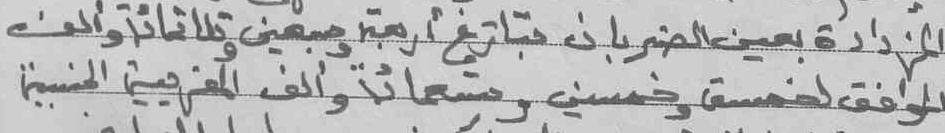 المزدادة بعين الضربان بتاريخ أربعة وسبعين وثلاثمائة وألف
الموافق لخمسة وخمسين وتسعمائة وألف المغربية الجنسية